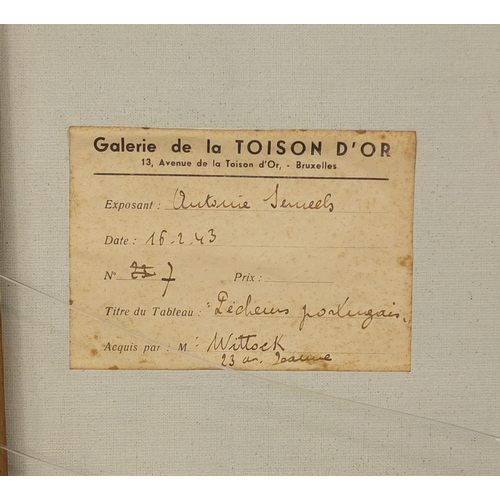 Galerie de la TOISON D'OR
13, Avenue de la Toison d'Or, - Bruxelles
Exposant : Antoine
Date : 16.2.43
N° 7 Prix :
Titre du Tableau : "Pêcheurs portugais.
Acquis par : M: Wittock
23 av. Jeanne